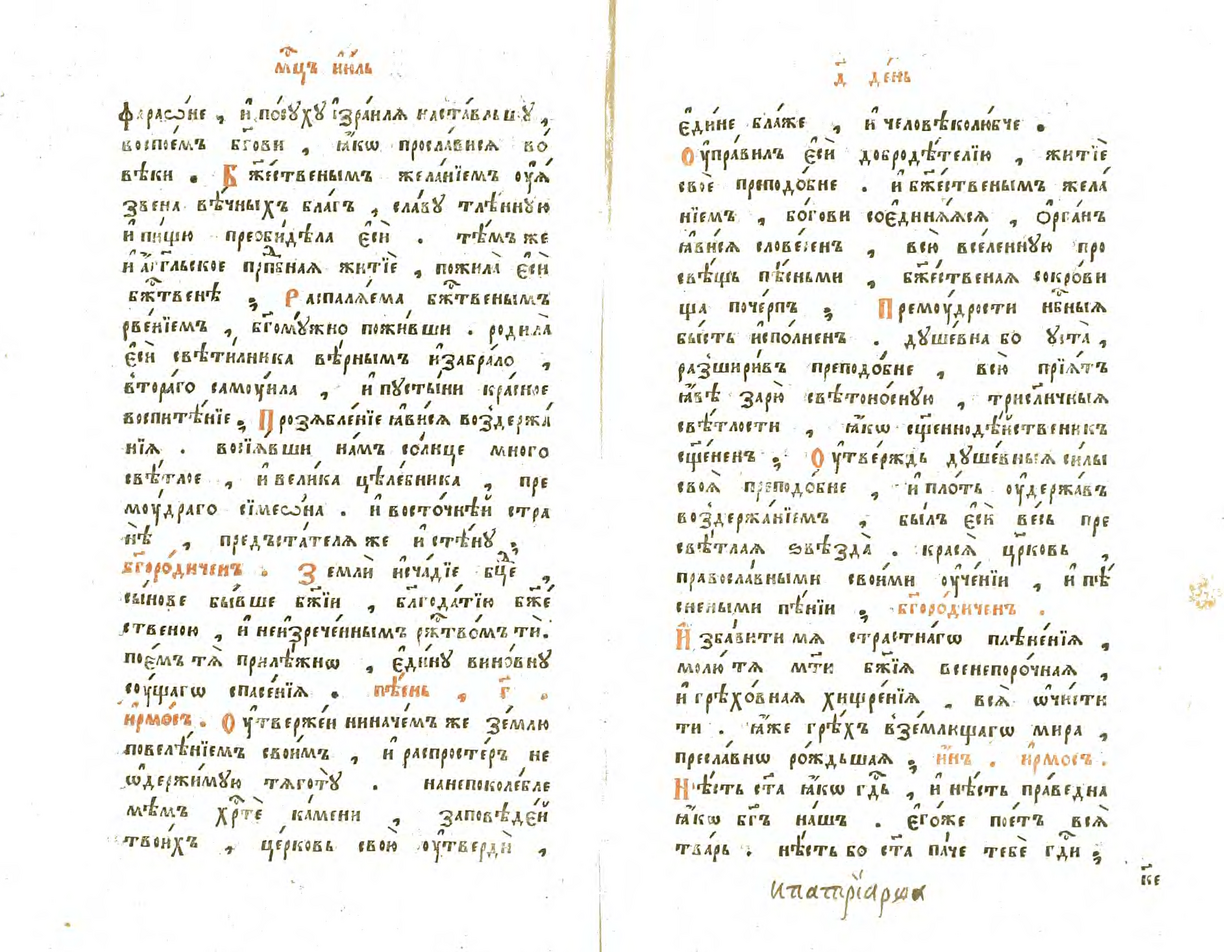 мⷭ҇цъ ію́ль
фараѡ́не , и҆ по́суху і҆зра́иля наста́вльшу ,
воспое́мъ бг҃ови , ꙗ҆́кѡ просла́вися во
вѣ́ки . Бж҃е́ственымъ жела́нїемъ оу҆ѧ
звена вѣ́чныхъ бла́гъ , сла́ву тлѣ́нную
и҆ пи́щю преоби́дѣла є҆сѝ . тѣ́мъ же
и҆ а҆́гг҃льское прпⷣбная житїѐ , пожила̀ є҆сѝ
бжⷭ҇твенѣ ; Распаля́ема бжⷭ҇твенымъ
рве́нїемъ , бг҃ому́жно пожи́вши . родила̀
є҆сѝ свѣти́лника вѣ́рнымъ и҆забра́ло ,
вто́раго самоуи́ла , и҆ пусты́ни кра́сное
воспита́нїе ; Прозябле́нїе ꙗ҆ви́ся воздержа́
нїя . возсїя́вши на́мъ со́лнце много
свѣ́тлое , и҆ вели́ка цѣле́бника , пре
моу́драго сїмеѡ́на . и҆ восто́чнѣй стра
нѣ̀ , предъста́теля же и҆ стѣ́ну ;
бг҃оро́диченъ . Землѝ и҆сча́дїе бц҃де ,
сы́нове бы́вше бж҃їи , бл҃года́тїю бж҃е́
ственою , и҆ неи҆зрече́ннымъ ржⷭ҇тво́мъ ти.
пое́мъ тѧ̀ прилѣ́жнѡ , є҆ди́ну вино́вну
соу́щагѡ спасе́нїя . пѣ́снь , г҃ .
и҆рмо́съ . Оу҆твержє́й нина чемъ же зе́млю
повелѣ́нїемъ свои́мъ , и҆ распросте́ръ не
ѡ҆держи́мую тяготу̀ . нанепоколе́бле
мѣмъ хрⷭ҇тѐ ка́мени , за́повѣдей
твои́хъ , це́рковь свою̀ оу҆твердѝ ,
д҃ де́нь
є҆ди́не бла́же , и҆ человѣколю́бче .
Оу҆пра́вилъ є҆сѝ добродѣ́телїю , житїѐ
своѐ преподо́бне . и҆ бж҃е́ственымъ жела́
нїемъ , бо́гови соединя́яся , о҆рга́нъ
ꙗ҆ви́ся слове́сенъ , всю̀ вселе́нную про
свѣ́щь пѣ́сньми , бж҃е́ственая сокро́ви
ща поче́рпъ ; Премоу́дрости нбⷭ҇ныя
бы́сть и҆спо́лненъ . душе́вна бо у҆ста̀ ,
разшири́въ преподо́бне , всю̀ прїя́тъ
ꙗ҆́вѣ зарю̀ свѣтоно́сную , трисл҃нчныя
свѣ́тлости , ꙗ҆́кѡ сщ҃еннодѣ́йственикъ
сщ҃е́ненъ ; Оу҆твержь душе́вныя си́лы
своя̀ преподо́бне , и҆ пло́ть оу҆держа́въ
воздержа́нїемъ , бы́лъ є҆сѝ ве́сь пре
свѣ́тлая ѕвѣзда̀ . крася̀ цр҃ковь ,
правосла́вными свои́ми оу҆че́нїи , и҆ пѣ́
сне́ными пѣ́нїи ; бг҃оро́диченъ .
И҆зба́вити мя стра́стнагѡ плѣне́нїя ,
молю́ тя мт҃и бж҃їя всенепоро́чная ,
и҆ грѣхо́вная хищре́нїя , вся̀ ѡ҆чи́сти
ти . ꙗ҆́же грѣ́хъ взе́млющагѡ мира ,
пресла́внѡ ро́ждьшая ; и҆́нъ . и҆рмо́съ .
Нѣ́сть ст҃а ꙗ҆́кѡ гдⷭ҇ь , и҆ нѣ́сть пра́ведна
ꙗ҆́кѡ бг҃ъ на́шъ . є҆го́же пое́тъ вся̀
тва́рь . нѣ́сть бо ст҃а па́че тебѐ гдⷭ҇и ;
к҃е
и патрїарха